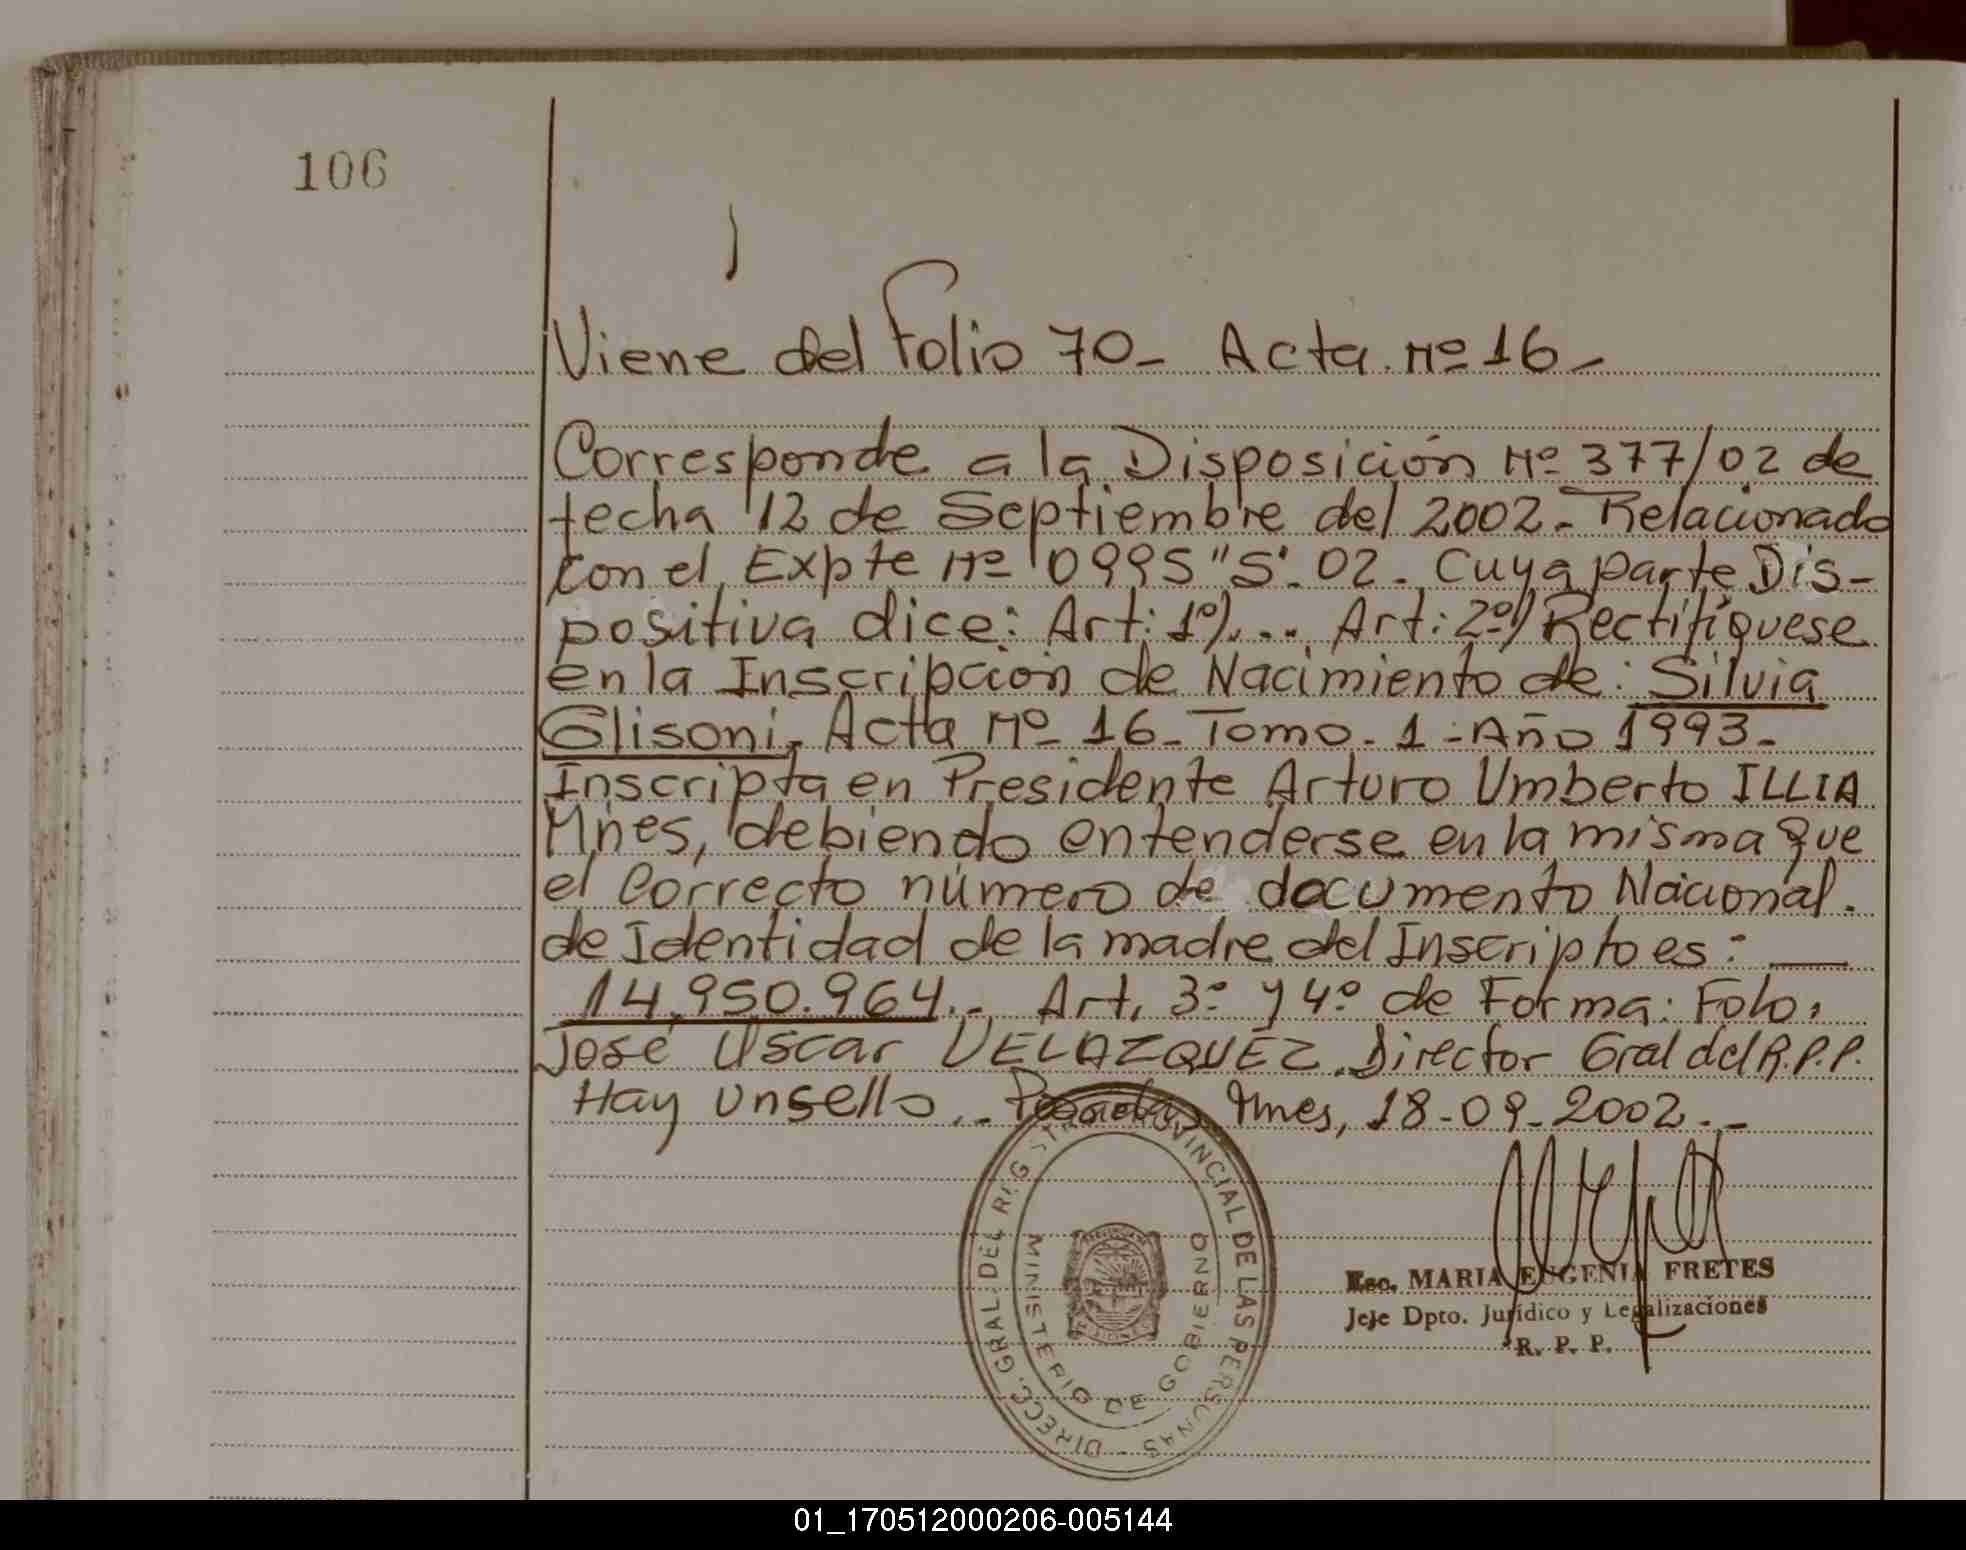 106
Viene del Folio 70_ Acta. Nº 16_
Corresponde a la Disposición Nº 377/02 de
fecha 12 de Septiembre del 2002._ Relacionado
con el Expte Nº 0995 "S". 02_ Cuya parte Dis-
positiva dice: Art: 1º)... Art: 2º) Rectifíquese
en la Inscripción de Nacimiento de: Silvia
Glisoni, Acta Nº 16_ Tomo. 1 - Año 1993_
Inscripta en Presidente Arturo Umberto ILLIA
Mnes, debiendo entenderse en la misma que
el Correcto número de documento Nacional.
de Identidad de la madre del Inscripto es: __
14.950.964._ Art. 3º y 4º de Forma: Fdo.
José Oscar VELAZQUEZ. Director Gral del R.P.P.
Hay un sello._ Posadas, Mnes, 18-09-2002._
DIRECC. GRAL. DEL REGISTRO PROVINCIAL DE LAS PERSONAS -
MINISTERIO DE GOBIERNO
Esc. MARIA EUGENIA FRETES
Jefe Dpto. Jurídico y Legalizaciones
R. P. P.
01_170512000206-005144